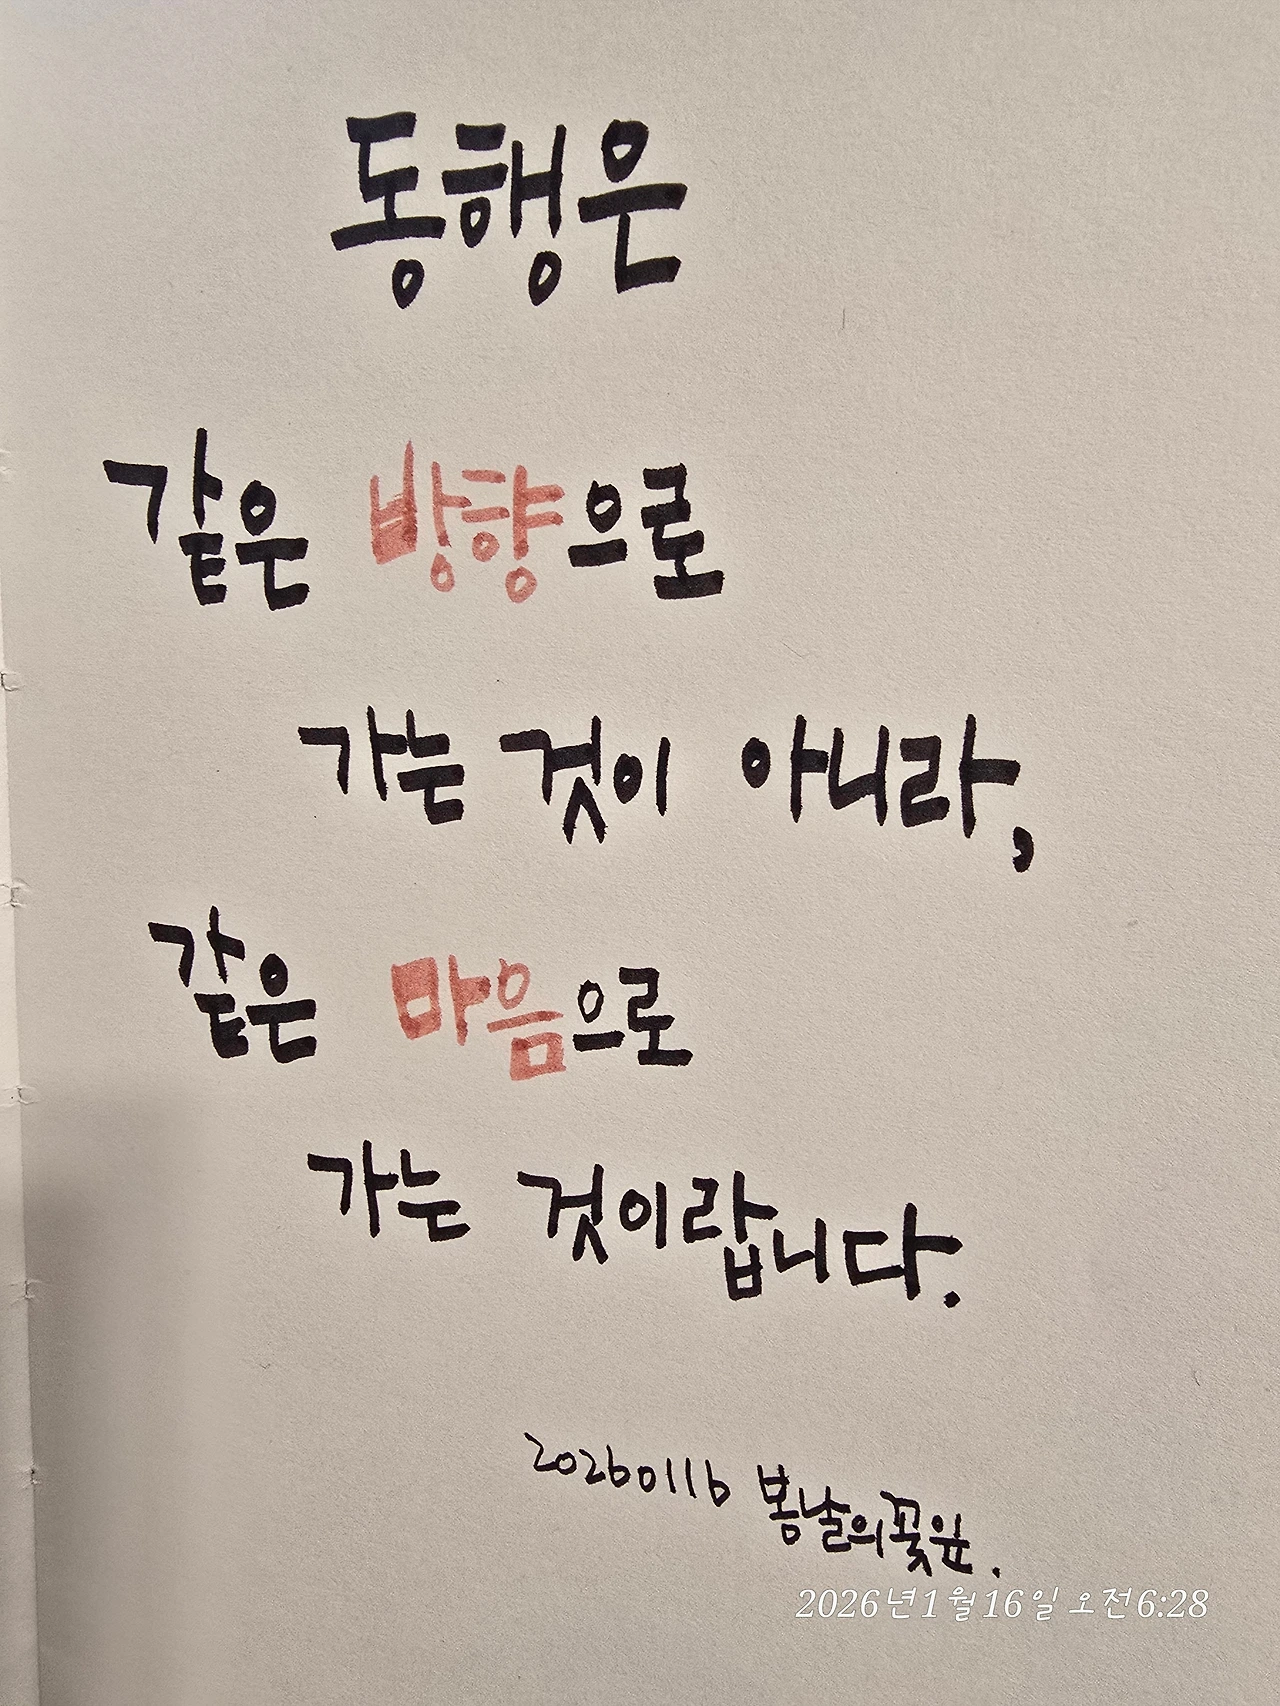 동행은
같은 방향으로
가는 것이 아니라,
같은 마음으로
가는 것이랍니다.
20260116 봄날의꽃잎.
2026년1월16일 오전6:28